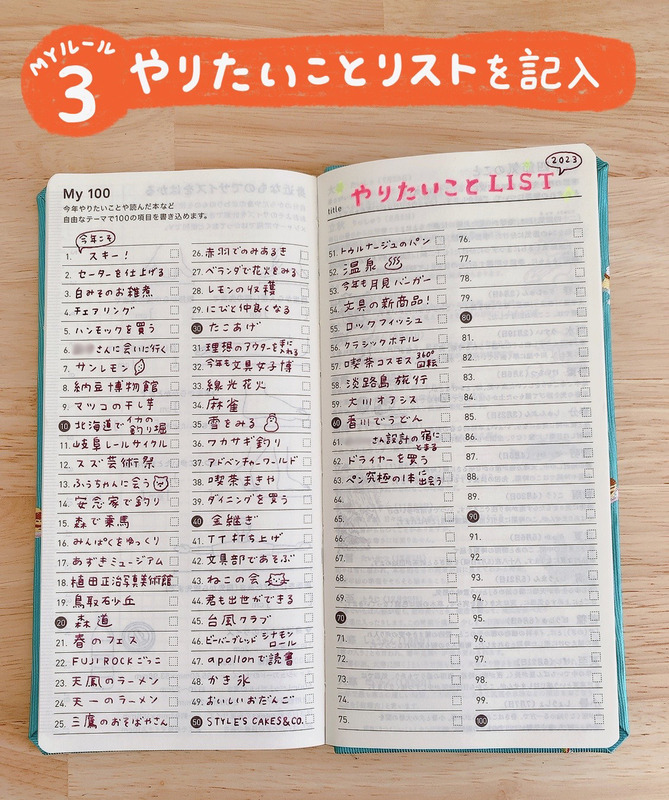 MYルール
3 やりたいことリストを記入
My 100
今年やりたいことや読んだ本など
自由なテーマで100の項目を書き込めます。
今年こそ
1. スキー！
2. セーターを仕上げる
3. 白みそのお雑煮
4. チェアリング
5. ハンモックを買う
6. さんに会いに行く
7. サンレモン
8. 納豆博物館
9. マツコの干し芋
10 北海道でイカの釣り堀
11. 山岐阜レールサイクル
12. スズ芸術祭
13. ふうちゃんに会う
14. 安念家で釣り
15. 森で乗馬
16. みんぱくをゆっくり
17. あずきミュージアム
18. 植田正治写真美術館
19. 鳥取石少丘
20 森道
21. 春のフェス
22. FUJI ROCKごっこ
23. 天鳳のラーメン
24. 天一のラーメン
25. 三鷹のおそばやさん
26. 赤羽でのみあるき
27. ベランダで花火をみる
28. レモンの収穫
29. にびと仲良くなる
30 たこあげ
31. 理想のアウターを手に入れる
32. 今年も文具女子博
33. 線光花火
34. 麻雀
35. 雪をみる
36. ワカサギ釣り
37. アドベンチャーワールド
38. 喫茶まきや
39. ダイニングを買う
40 金継ぎ
41. TT打ち上げ
42. 文具部であそぶ
43. ねこの会
44. 君も出世ができる
45. 台風クラブ
46. ビーバーブレッド シナモンロール
47. apollonで読書
48. かき氷
49. おいしいおだんご
50 STYLE'S CAKES&CO.
2023
title やりたいことLIST
51. トゥルナージュのパン
52. 温泉
53. 今年も月見バーガー
54. 文具の新商品！
55. ロックフィッシュ
56. クラシックホテル
57. 喫茶コスモス 360°回転
58. 淡路島旅行
59. 大川オアシス
60 香川でうどん
61. さん設計の宿にとまる
62. ドライヤーを買う
63. ペン究極の1本に出会う
64.
65.
66.
67.
68.
69.
70
71.
72.
73.
74.
75.
76.
77.
78.
79.
80
81.
82.
83.
84.
85.
86.
87.
88.
89.
90
91.
92.
93.
94.
95.
96.
97.
98.
99.
100